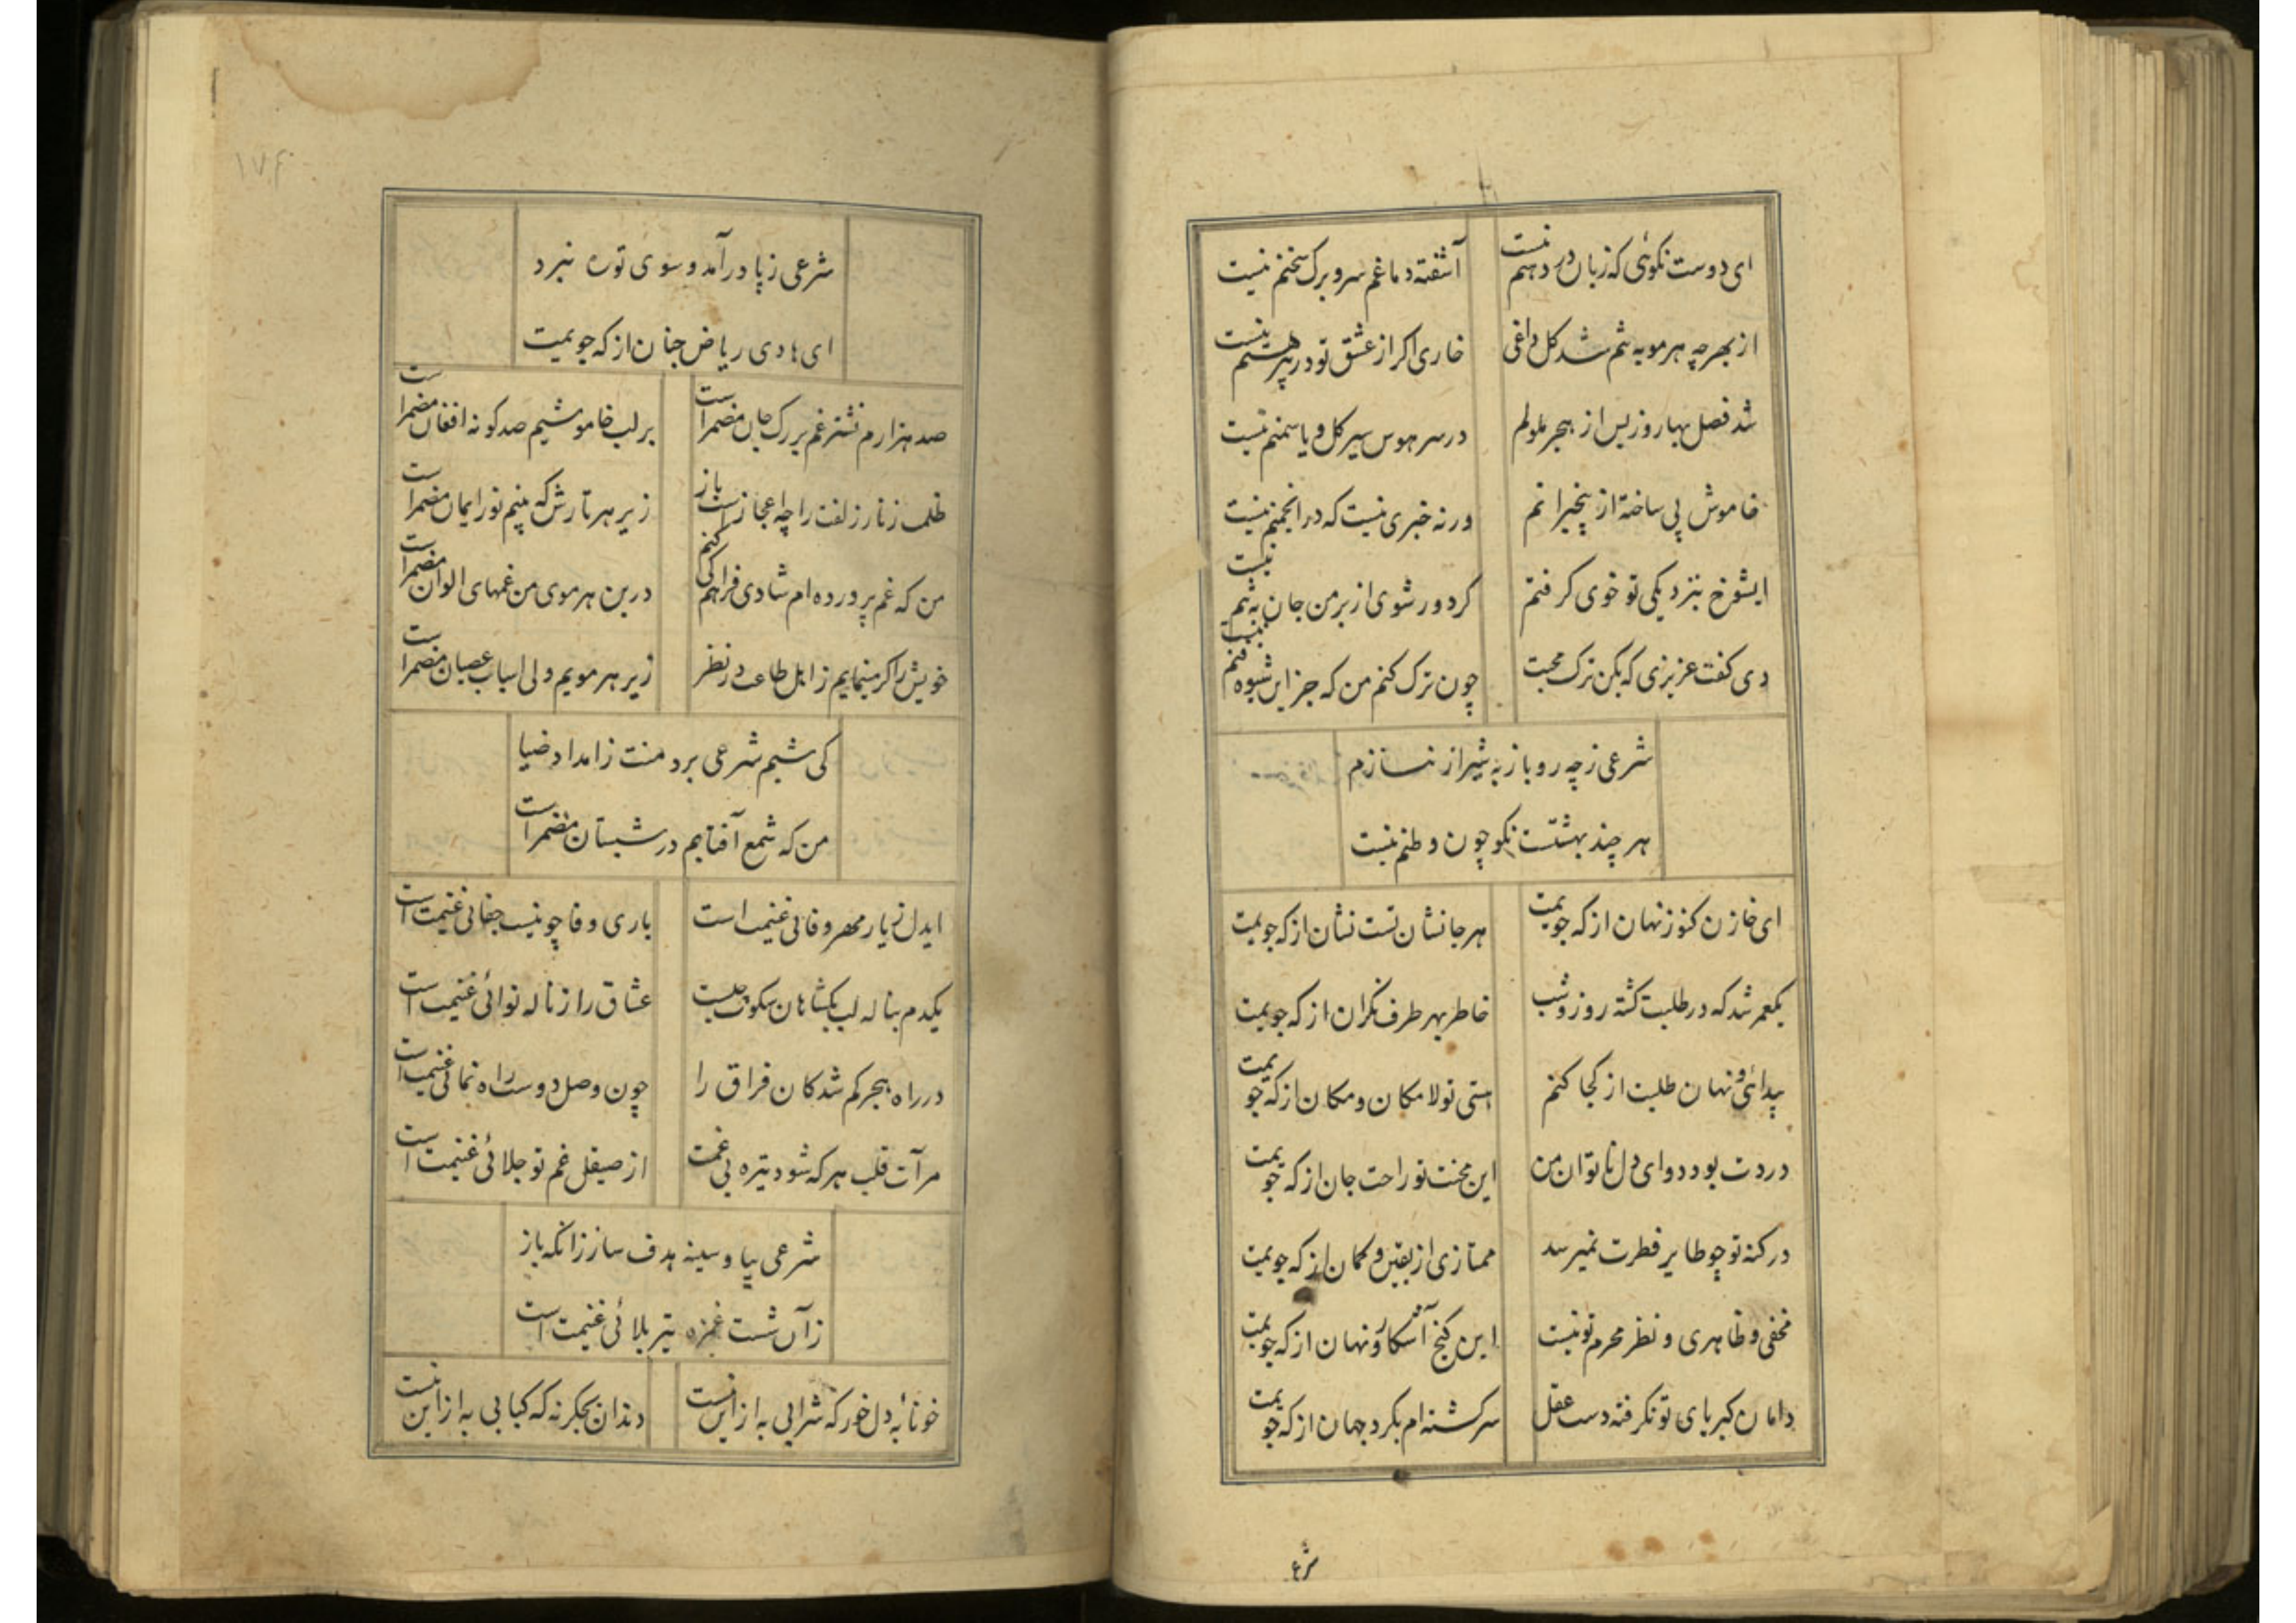 ای دوست نکوئی که زبان در دهنم نیست
آشفته دماغم سر و برک سخنم نیست
از بهر چه هر مو به تنم شد کل داغی
خاری اکر از عشق تو در پیرهنم نیست
شد فصل بهار و ز پس از هجر ملولم
در سر هوس سیر کل و یاسمنم نیست
خاموش پی ساخته از بیخبرانم
ورنه خبری نیست که در انجمنم نیست
ایشوخ بنزدیکی تو خوی کرفتم
کر دور شوی از بر من جان به تنم نیست
دی کفت عزیزی که بکن ترک محبت
چون ترک کنم من که جز این شیوه فنم نیست
شرعی ز چه رو باز به شیراز نسازم
هر چند بهشتست نکو چون وطنم نیست
ای خازن کنوز نهان از که جویمت
هر جا نشان تست نشان از که جویمت
یکعمر شد که در طلبت کشته روز و شب
خاطر بهر طرف نکران از که جویمت
پیدائی و نهان طلبت از کجا کنم
استی تو لامکان و مکان از که جویمت
دردت بود دوای دل ناتوان من
این محنت تو راحت جان از که جویمت
در کنه تو چو طایر فطرت نمیرسد
ممتازی از یقین و کمان از که جویمت
مخفی و ظاهری و نظر محرم تو نیست
این کنج آشکار و نهان از که جویمت
دامان کبریای تو نکرفته دست عقل
سرکشته ام بکرد جهان از که جویمت
شرعی
۱۷۴
شرعی ز پا درآمد و سوی تو ره نبرد
ای هادی ریاض جنان از که جویمت
صد هزارم نشتر غم بر رک جان مضمر است
بر لب خاموشیم صد کونه افغان مضمر است
ظلمت زنار زلفت را چه اعجاز است باز
زیر هر تارش که بینم نور ایمان مضمر است
من که غم پرورده ام شادی فراهم کی کنم
در بن هر موی من غمهای الوان مضمر است
خویش را کر مینمایم ز اهل طاعت در نظر
زیر هر مویم ولی اسباب عصیان مضمر است
کی شبم شرعی برد منت ز امداد ضیا
من که شمع آفتابم در شبستان مضمر است
ایدل ز یار مهر و وفائی غنیمت است
باری وفا چو نیست جفائی غنیمت است
یکدم بناله لب بکشا هان سکوت چیست
عشاق را ز ناله نوائی غنیمت است
در راه هجر کم شدکان فراق را
چون وصل دوست راه نمائی غنیمت است
مرآت قلب هر که شود تیره بی غمت
از صیقل غم تو جلائی غنیمت است
شرعی بیا و سینه هدف ساز زانکه باز
زآن شست غمزه تیر بلائی غنیمت است
خونابه دل خور که شرابی به ازین نیست
دندان بجکر نه که کبابی به ازاین نیست